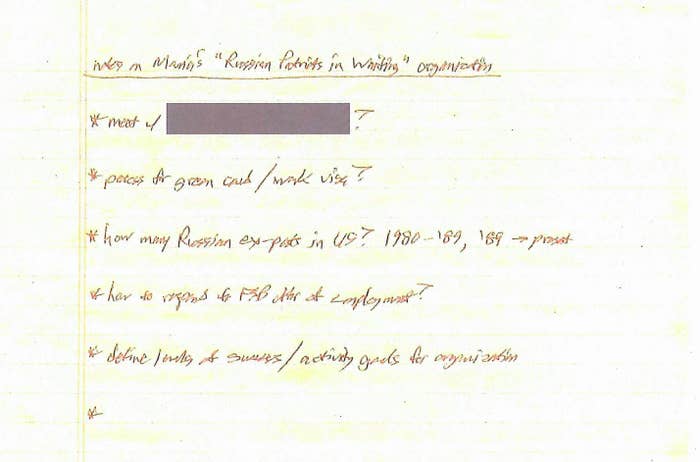 notes on Maria's "Russian Patriots in Waiting" organization
* meet w/ ?
* process for green card / work visa?
* how many Russian ex-pats in US? 1980 - '89, '89 → present
* how to respond to FSB offer of employment?
* define levels of success / activity goals for organization
*